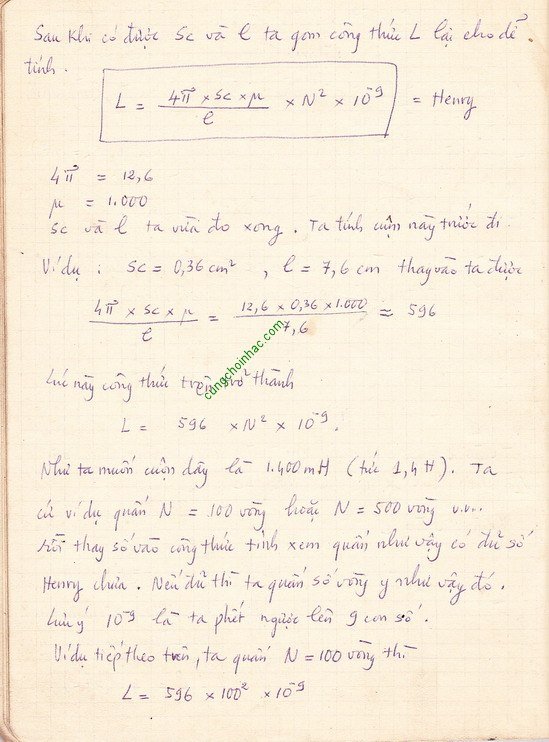 Sau khi có được Sc và l ta gom công thức L lại cho dễ
tính.
L = 4π × Sc × μ / l × N² × 10⁻⁹ = Henry
4π = 12,6
μ = 1.000
Sc và l ta vừa đo xong. Ta tính cụm này trước đi.
Ví dụ : Sc = 0,36 cm² , l = 7,6 cm thay vào ta được
4π × Sc × μ / l = 12,6 × 0,36 × 1.000 / 7,6 ≈ 596
cungchoinhac.com
Lúc này công thức trên trở thành
L = 596 × N² × 10⁻⁹.
Như ta muốn cuộn dây là 1.400mH (tức 1,4H). Ta
cứ ví dụ quấn N = 100 vòng hoặc N = 500 vòng v.v...
rồi thay số vào công thức tính xem quấn như vậy có đủ số
Henry chưa. Nếu đủ thì ta quấn số vòng y như vậy đó.
Lưu ý 10⁻⁹ là ta phết ngược lên 9 con số.
Ví dụ tiếp theo trên, ta quấn N = 100 vòng thì
L = 596 × 100² × 10⁻⁹